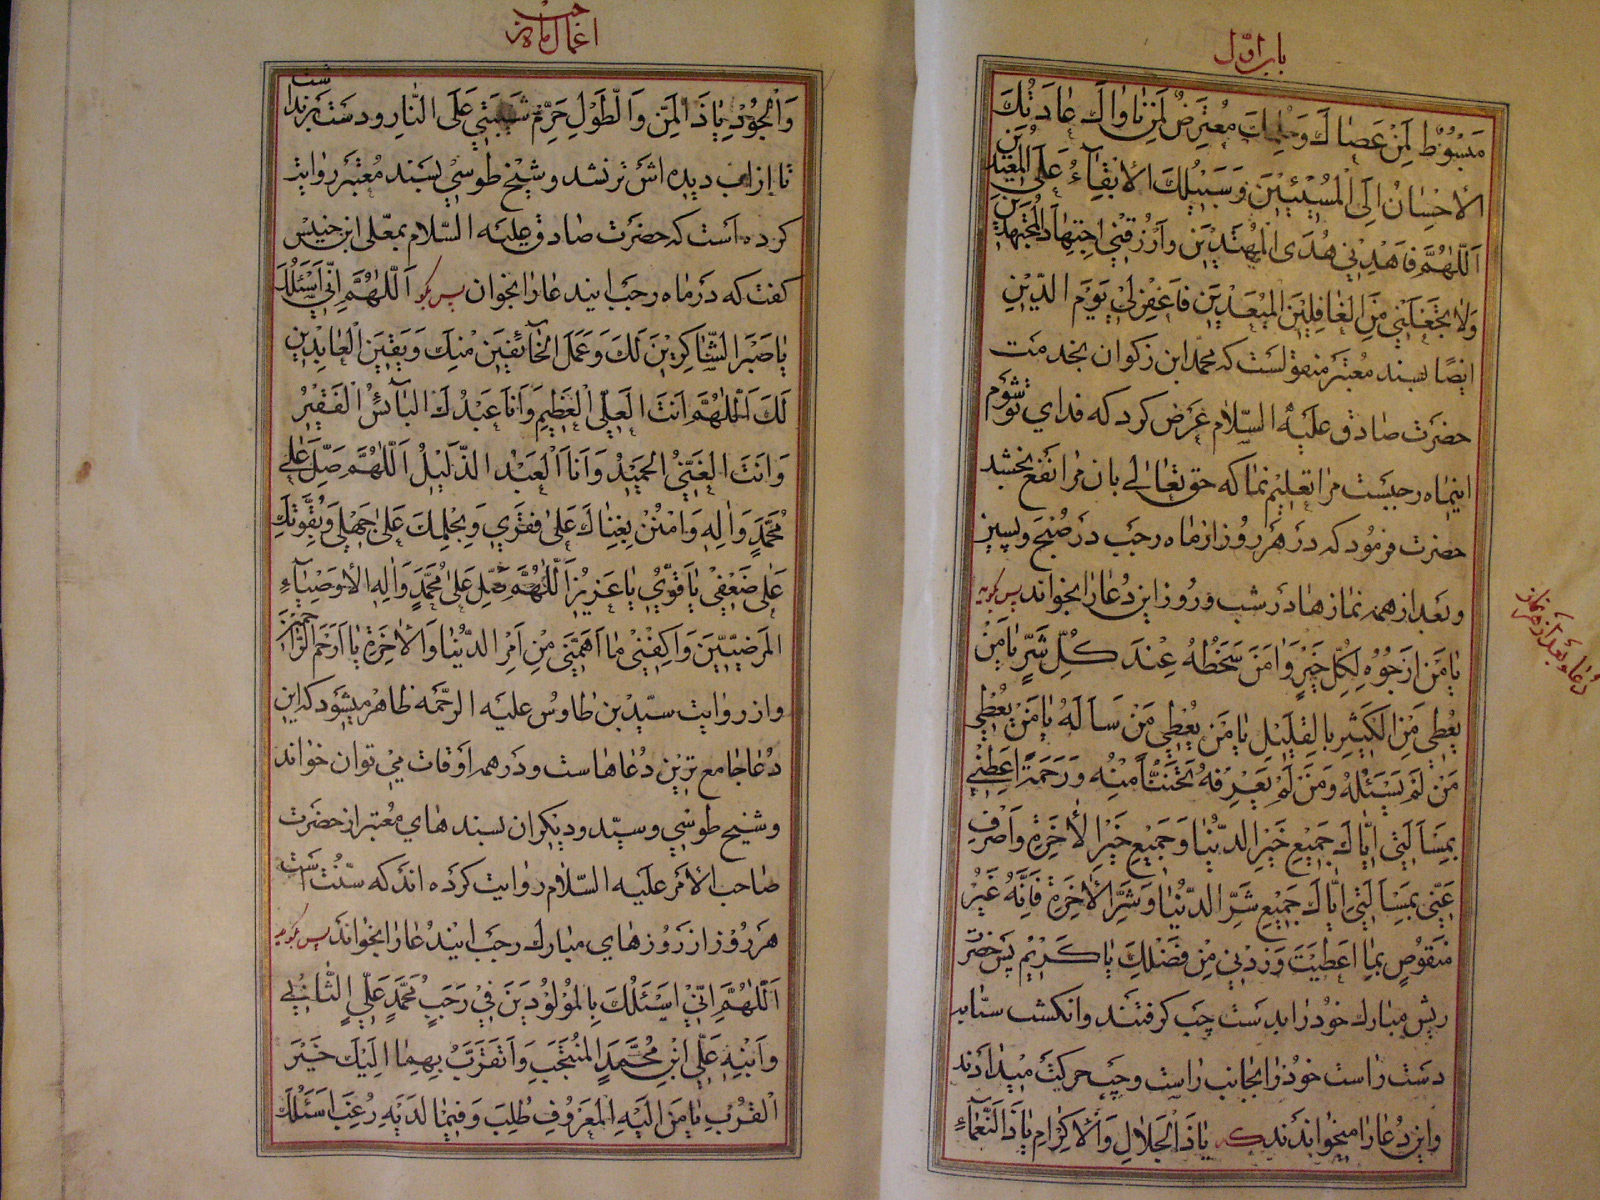 باب اوّل
مَبْسُوْطٌ لِمَنْ عَصَاكَ وَحِلْمُكَ مُعْتَرِضٌ لِمَنْ نَاوَاكَ عَادَتُكَ
الْاِحْسَانُ اِلَى الْمُسِيْئِيْنَ وَسَبِيْلُكَ الْاِبْقَاءُ عَلَى الْمُعْتَدِيْنَ
اَللّٰهُمَّ فَاهْدِنِي هُدَى الْمُهْتَدِيْنَ وَارْزُقْنِي اجْتِهَادَ الْمُجْتَهِدِيْنَ
وَلَا تَجْعَلْنِي مِنَ الْغَافِلِيْنَ الْمُبْعَدِيْنَ فَاغْفِرْ لِيْ يَوْمَ الدِّيْنِ
ايضًا بسند معتبر منقولست که محمد ابن ذکوان بخدمت
حضرت صادق علیه السّلام عرض کرد که فدای تو شوم
اینماه رجبست مرا تعلیم نما که حق تعالی بان مرا نفع بخشد
حضرت فرمود که در هر روز از ماه رجب در صبح و پسین
و بعد از همه نمازها در شب و روز این دعا را بخواند پس بگوید
يَا مَنْ اَرْجُوْهُ لِكُلِّ خَيْرٍ وَاٰمَنُ سَخَطَهُ عِنْدَ كُلِّ شَرٍّ يَا مَنْ
يُعْطِي مَنِ الْكَثِيْرَ بِالْقَلِيْلِ يَا مَنْ يُعْطِي مَنْ سَاَلَهُ يَا مَنْ يُعْطِي
مَنْ لَمْ يَسْئَلْهُ وَمَنْ لَمْ يَعْرِفْهُ تَحَنُّنًا مِنْهُ وَرَحْمَةً اَعْطِنِي
بِمَسْاَلَتِي اِيَّاكَ جَمِيْعَ خَيْرِ الدُّنْيَا وَجَمِيْعَ خَيْرِ الْاٰخِرَةِ وَاصْرِفْ
عَنِّي بِمَسْاَلَتِي اِيَّاكَ جَمِيْعَ شَرِّ الدُّنْيَا وَشَرِّ الْاٰخِرَةِ فَاِنَّهُ غَيْرُ
مَنْقُوْصٍ بِمَا اَعْطَيْتَ وَزِدْنِي مِنْ فَضْلِكَ يَا كَرِيْمُ پس حضرت
ریش مبارک خود را بدست چپ کرفتند و انکشت سبابه
دست راست خود را بجانب راست و چپ حرکت میدادند
و این دعا را میخواندند که يَا ذَا الْجَلَالِ وَالْاِكْرَامِ يَا ذَا النَّعْمَاءِ
دعاء بعد از هر نماز
اعمال ماه رجب
وَالْجُوْدِ يَا ذَا الْمَنِّ وَالطَّوْلِ حَرِّمْ شَيْبَتِي عَلَى النَّارِ و دست برنداشت
تا از اب دیده اش تر نشد و شیخ طوسی بسند معتبر روایت
کرده است که حضرت صادق علیه السّلام بمعلی ابن خنیس
کفت که در ماه رجب ایندعا را بخوان پس بگو اَللّٰهُمَّ اِنِّي اَسْئَلُكَ
يَا صَبْرَ الشَّاكِرِيْنَ لَكَ وَعَمَلَ الْخَائِفِيْنَ مِنْكَ وَيَقِيْنَ الْعَابِدِيْنَ
لَكَ اَللّٰهُمَّ اَنْتَ الْعَلِيُّ الْعَظِيْمُ وَاَنَا عَبْدُكَ الْبَائِسُ الْفَقِيْرُ
وَاَنْتَ الْغَنِيُّ الْحَمِيْدُ وَاَنَا الْعَبْدُ الذَّلِيْلُ اَللّٰهُمَّ صَلِّ عَلٰى
مُحَمَّدٍ وَاٰلِهِ وَامْنُنْ بِغِنَاكَ عَلٰى فَقْرِي وَبِحِلْمِكَ عَلٰى جَهْلِي وَبِقُوَّتِكَ
عَلٰى ضَعْفِي يَا قَوِيُّ يَا عَزِيْزُ اَللّٰهُمَّ صَلِّ عَلٰى مُحَمَّدٍ وَاٰلِهِ الْاَوْصِيَاءِ
الْمَرْضِيِّيْنَ وَاكْفِنِي مَا اَهَمَّنِي مِنْ اَمْرِ الدُّنْيَا وَالْاٰخِرَةِ يَا اَرْحَمَ الرَّاحِمِيْنَ
و از روایت سیّد بن طاوس علیه الرحمه ظاهر میشود که این
دعا جامع ترین دعاهاست و در همه اوقات می توان خواند
و شیخ طوسی و سیّد و دیکران بسندهای معتبر از حضرت
صاحب الامر علیه السّلام روایت کرده اند که سنّت است
هر روز از روزهای مبارک رجب ایندعا را بخواند پس بگوید
اَللّٰهُمَّ اِنِّي اَسْئَلُكَ بِالْمَوْلُوْدَيْنَ فِيْ رَجَبٍ مُحَمَّدِ بْنِ عَلِيٍّ الثَّانِي
وَابْنِهِ عَلِيِّ ابْنِ مُحَمَّدٍ الْمُنْتَجَبِ وَاَتَقَرَّبُ بِهِمَا اِلَيْكَ خَيْرَ
الْقُرَبِ يَا مَنْ اِلَيْهِ الْمَعْرُوْفُ طُلِبَ وَفِيْمَا لَدَيْهِ رُغِبَ اَسْئَلُكَ